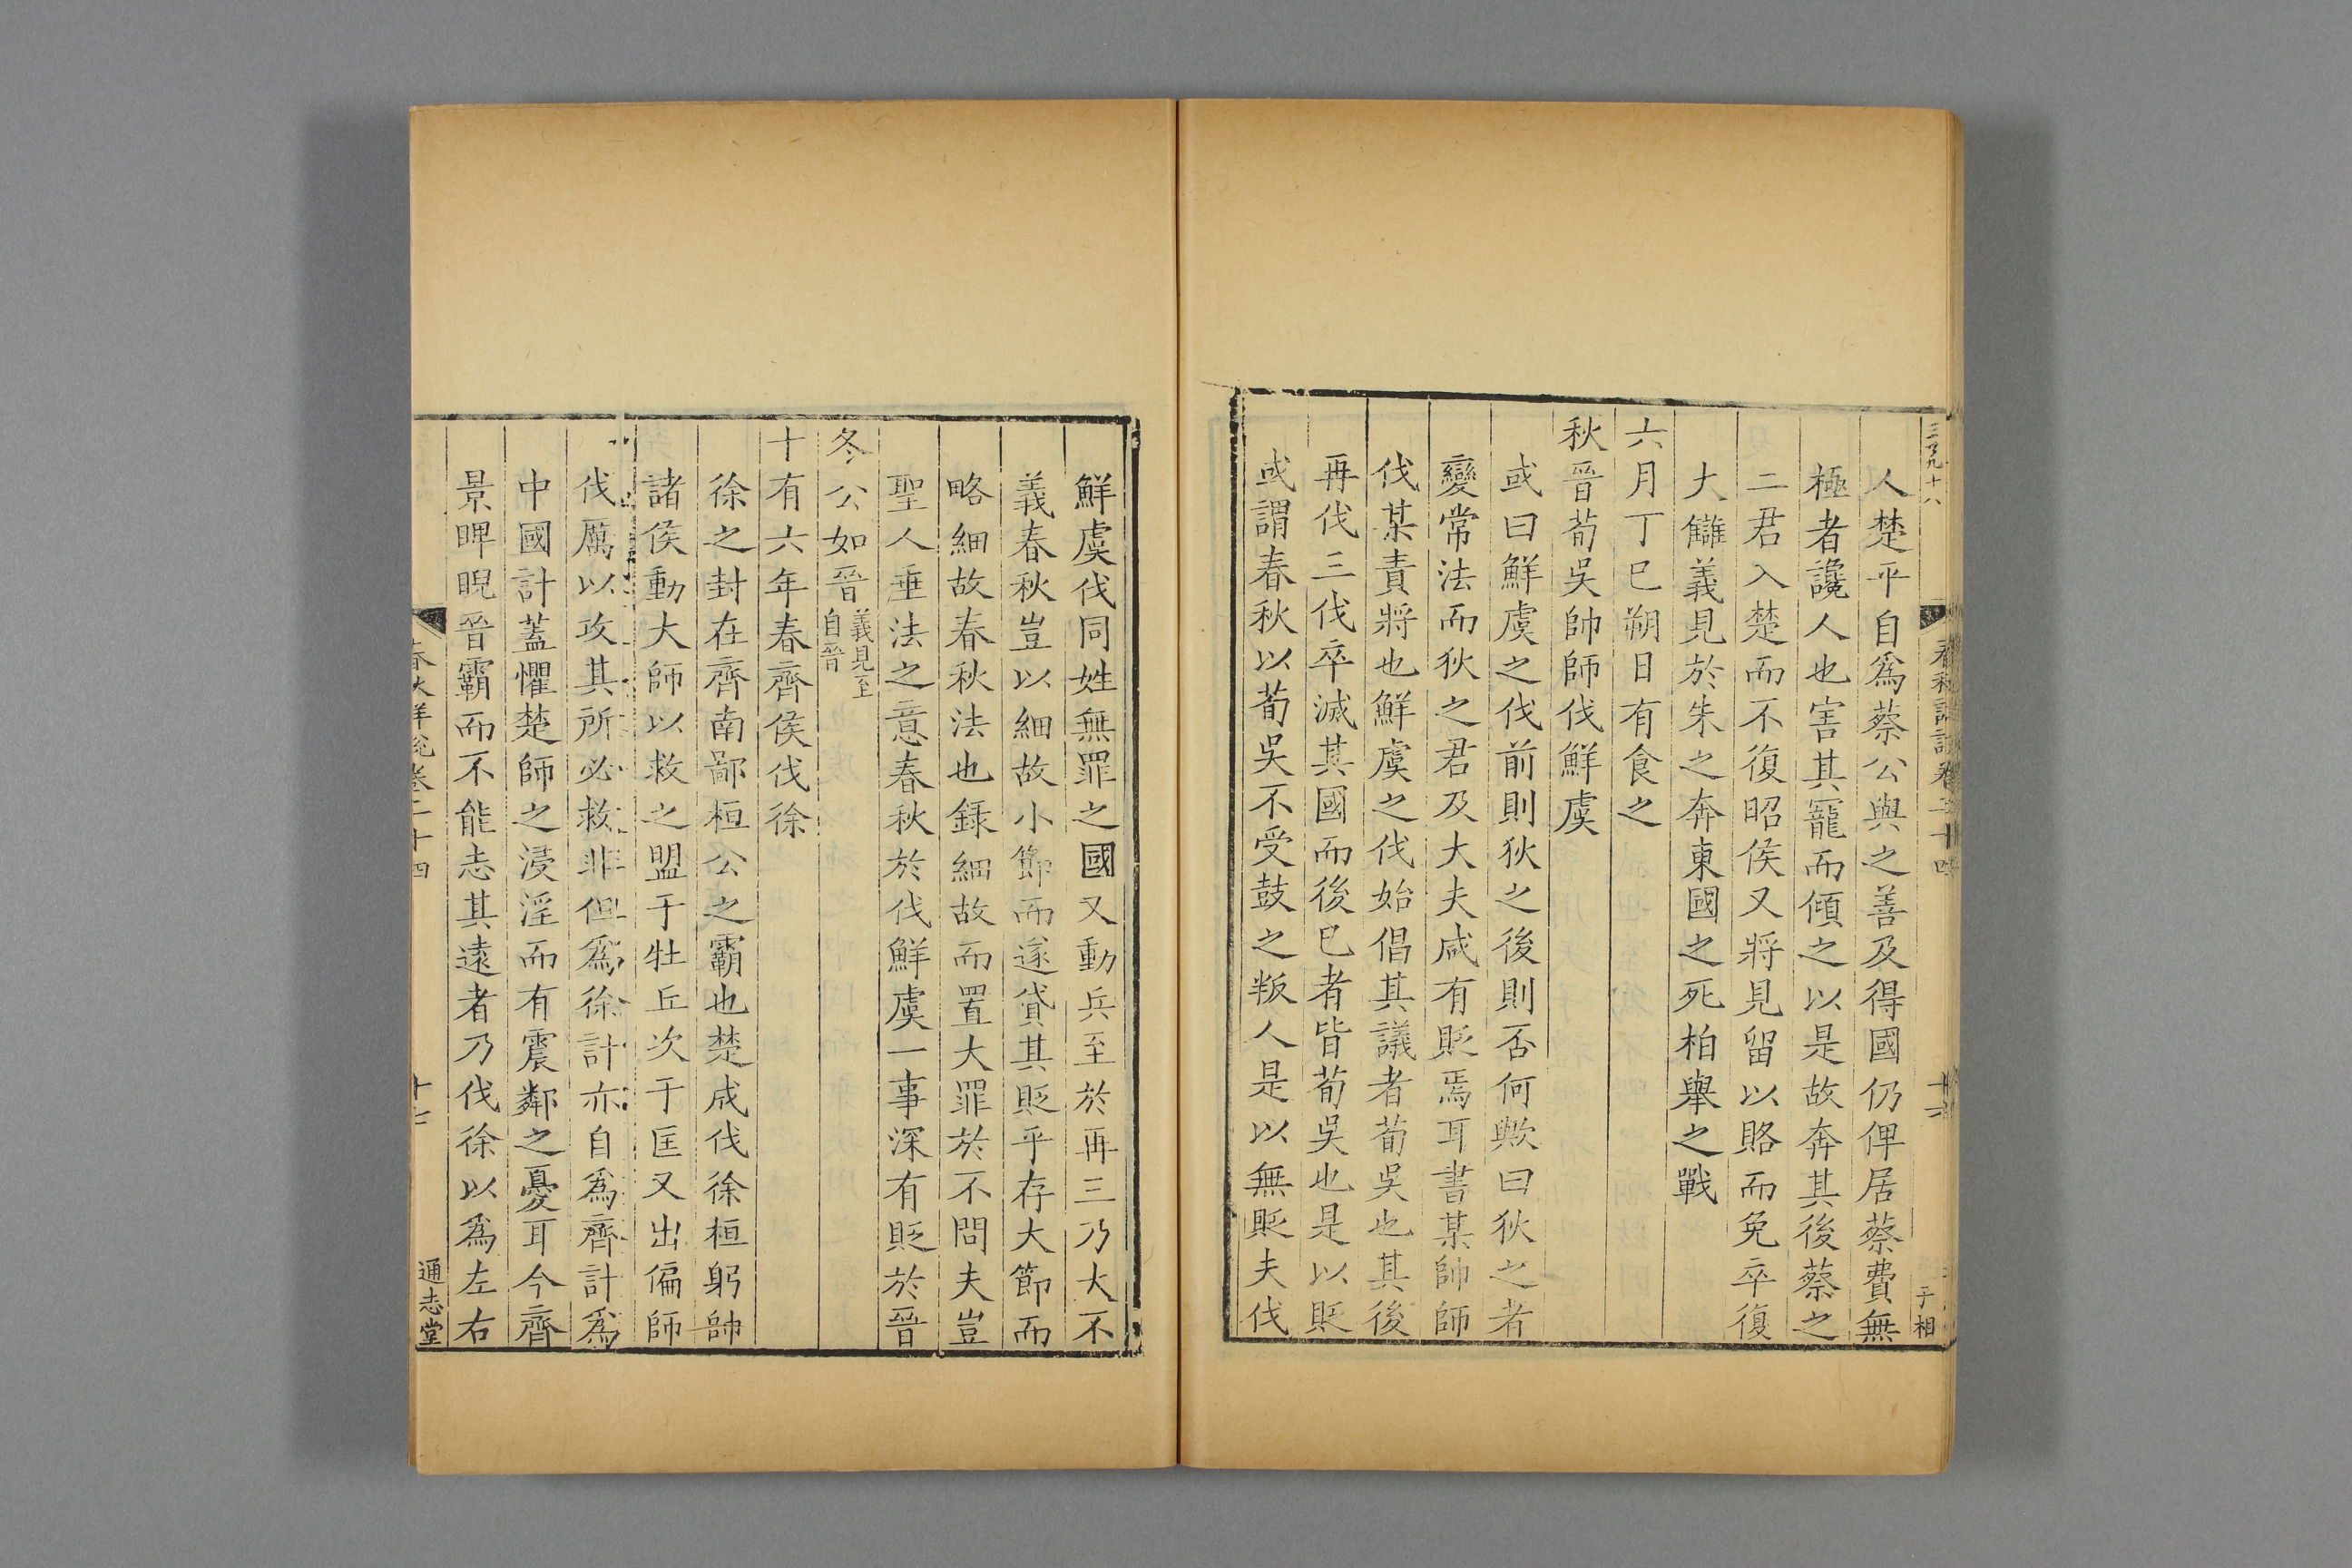 人楚平自爲蔡公與之善及得國仍俾居蔡費無
極者讒人也害其寵而傾之以是故奔其後蔡之
二君入楚而不復昭侯又將見留以賂而免卒復
大讎義見於朱之奔東國之死柏舉之戰
六月丁巳朔日有食之
秋晉荀吳帥師伐鮮虞
或曰鮮虞之伐前則狄之後則否何歟曰狄之者
變常法而狄之君及大夫咸有貶焉耳書某帥師
伐某責將也鮮虞之伐始倡其議者荀吳也其後
再伐三伐卒滅其國而後已者皆荀吳也是以貶
或謂春秋以荀吳不受鼓之叛人是以無貶夫伐
鮮虞伐同姓無罪之國又動兵至於再三乃大不
義春秋豈以細故小節而遂貸其貶乎存大節而
略細故春秋法也錄細故而置大罪於不問夫豈
聖人垂法之意春秋於伐鮮虞一事深有貶於晉
冬公如晉義見至自晉
十有六年春齊侯伐徐
徐之封在齊南鄙桓公之霸也楚成伐徐桓躬帥
諸侯動大師以救之盟于牡丘次于匡又出偏師
伐厲以攻其所必救非但爲徐計亦自爲齊計爲
中國計蓋懼楚師之浸淫而有震鄰之憂耳今齊
景睥睨晉霸而不能志其遠者乃伐徐以爲左右
春秋詳說卷二十四
十七
通志堂